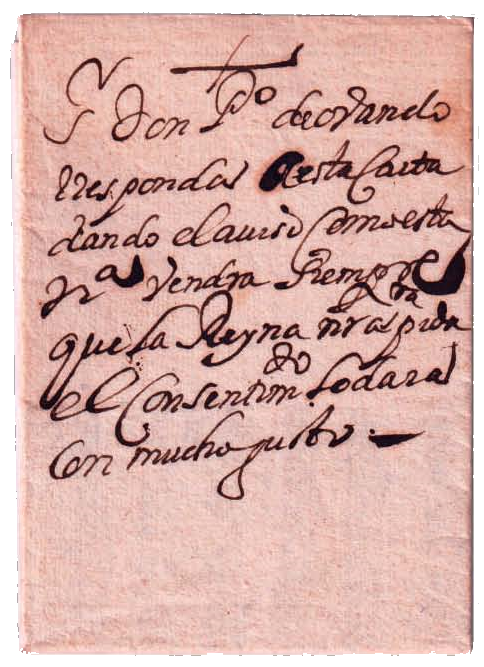 Sr Don Po de obando
rresponda a esta Carta
dando el auiso Como esta
Nra Vendra Siempre
que la Reyna nra Sra pida
el Consentimto lo dara
Con mucho gusto.